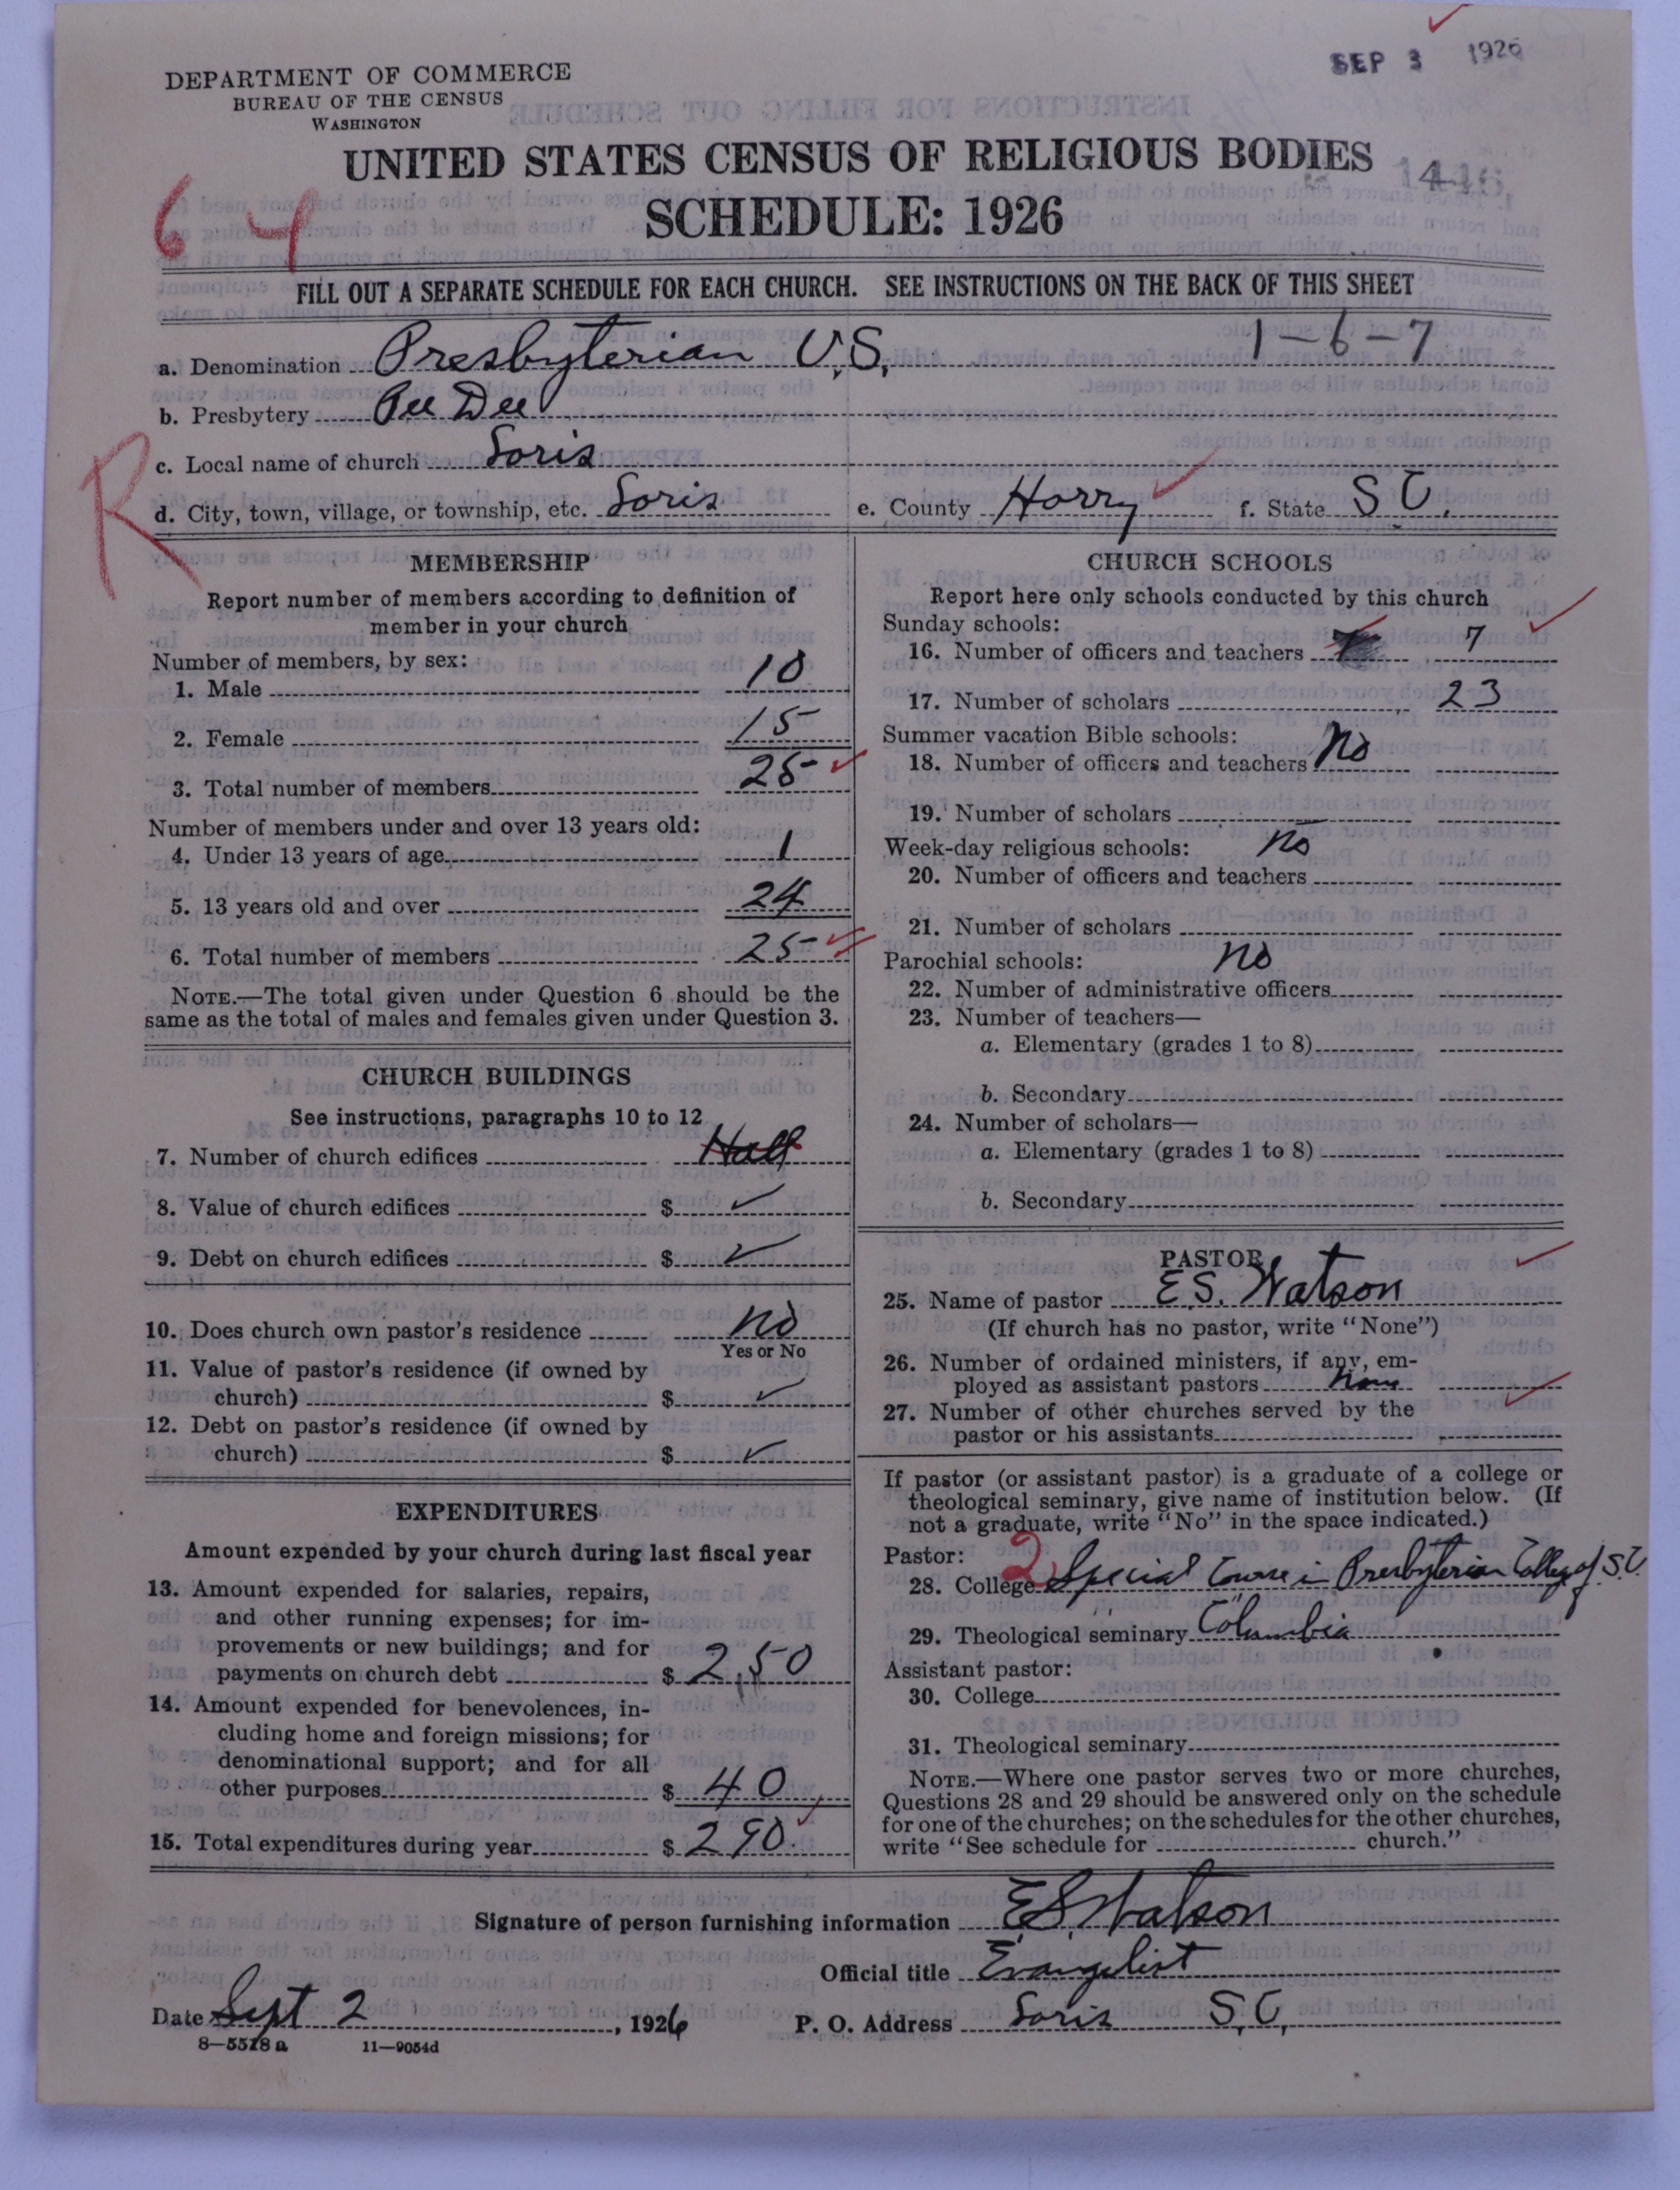 SEP 3 1926
DEPARTMENT OF COMMERCE
BUREAU OF THE CENSUS
WASHINGTON
UNITED STATES CENSUS OF RELIGIOUS BODIES
SCHEDULE: 1926
64
FILL OUT A SEPARATE SCHEDULE FOR EACH CHURCH. SEE INSTRUCTIONS ON THE BACK OF THIS SHEET
1-6-7
a. Denomination Presbyterian U.S.
b. Presbytery Pee Dee
c. Local name of church Loris
R
d. City, town, village, or township, etc. Loris e. County Horry f. State S C.
MEMBERSHIP
Report number of members according to definition of
member in your church
Number of members, by sex:
1. Male 10
2. Female 15
3. Total number of members 25
Number of members under and over 13 years old:
4. Under 13 years of age 1
5. 13 years old and over 24
6. Total number of members 25
NOTE.—The total given under Question 6 should be the
same as the total of males and females given under Question 3.
CHURCH BUILDINGS
See instructions, paragraphs 10 to 12
7. Number of church edifices Hall
8. Value of church edifices $ ✓
9. Debt on church edifices $ ✓
10. Does church own pastor's residence No
Yes or No
11. Value of pastor's residence (if owned by
church) $ ✓
12. Debt on pastor's residence (if owned by
church) $ ✓
EXPENDITURES
Amount expended by your church during last fiscal year
13. Amount expended for salaries, repairs,
and other running expenses; for im-
provements or new buildings; and for
payments on church debt $ 250
14. Amount expended for benevolences, in-
cluding home and foreign missions; for
denominational support; and for all
other purposes $ 40
15. Total expenditures during year $ 290.
CHURCH SCHOOLS
Report here only schools conducted by this church
Sunday schools:
16. Number of officers and teachers 7
17. Number of scholars 23
Summer vacation Bible schools:
18. Number of officers and teachers No
19. Number of scholars
Week-day religious schools: no
20. Number of officers and teachers
21. Number of scholars
Parochial schools: no
22. Number of administrative officers
23. Number of teachers—
a. Elementary (grades 1 to 8)
b. Secondary
24. Number of scholars—
a. Elementary (grades 1 to 8)
b. Secondary
PASTOR
25. Name of pastor E S. Watson
(If church has no pastor, write "None")
26. Number of ordained ministers, if any, em-
ployed as assistant pastors None
27. Number of other churches served by the
pastor or his assistants
If pastor (or assistant pastor) is a graduate of a college or
theological seminary, give name of institution below. (If
not a graduate, write "No" in the space indicated.)
Pastor: 2
28. College Special Course in Presbyterian College of S.C.
29. Theological seminary Columbia
Assistant pastor:
30. College
31. Theological seminary
NOTE.—Where one pastor serves two or more churches,
Questions 28 and 29 should be answered only on the schedule
for one of the churches; on the schedules for the other churches,
write "See schedule for church."
Signature of person furnishing information E.S. Watson
Official title Evangelist
Date Sept 2, 1926 P. O. Address Loris S.C.
8—5528 a 11—9054d